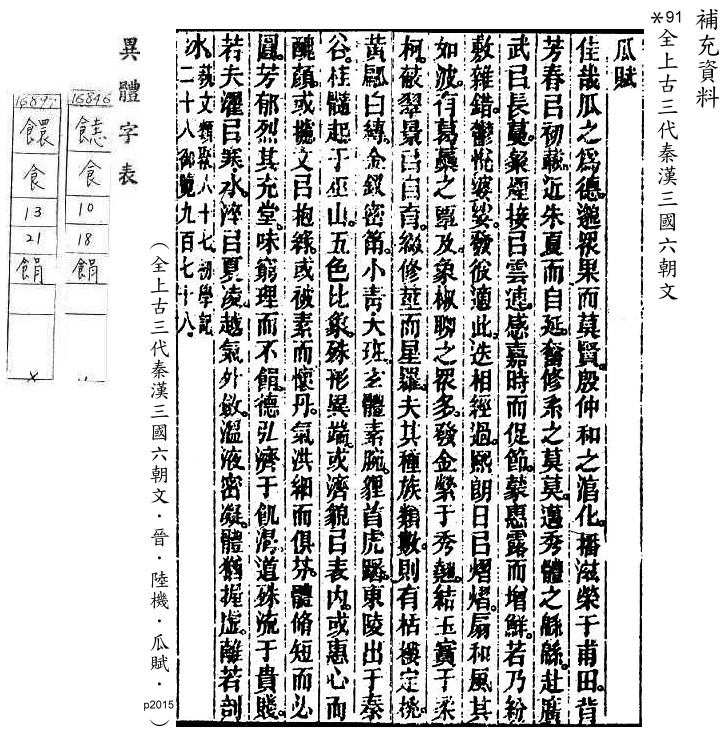 補充資料
*91全上古三代秦漢三國六朝文
瓜賦
佳哉瓜之爲德邈衆果而莫賢殷仲和之淯化播滋榮于甫田背
芳春㠯初載近朱夏而自延奮修系之莫莫邁秀體之緜緜赴廣
武㠯長蔓粲煙接㠯雲連感嘉時而促節蒙惠露而增鮮若乃紛
敷雜錯鬱悅婆娑發彼適此迭相經過熙朗日㠯熠熠扇和風其
如波有葛藟之覃及象椒聊之衆多發金縈于秀翹結玉實于柔
柯蔽翠景㠯自育綴修莖而星羅夫其種族類數則有栝樓定桃
黃㼐白㼖金釵密筩小靑大班玄體素腕貍首虎蹯東陵出于秦
谷桂髓起于巫山五色比象殊形異端或濟貌㠯表內或惠心而
醜顏或攄文㠯抱綠或被素而懷丹氣洪細而俱芬體脩短而必
圓芳郁烈其充堂味窮理而不餶德弘濟于飢渴道殊流于貴賤
若夫濯㠯寒水淬㠯夏凌越氣外斂溫液密凝體猶握虛離若剖
水藝文類聚八十七初學記
二十八御覽九百七十八
(全上古三代秦漢三國六朝文．晉．陸機．瓜賦．p2015)
異體字表
16846
食
10
18
餶
1684
食
13
21
餶